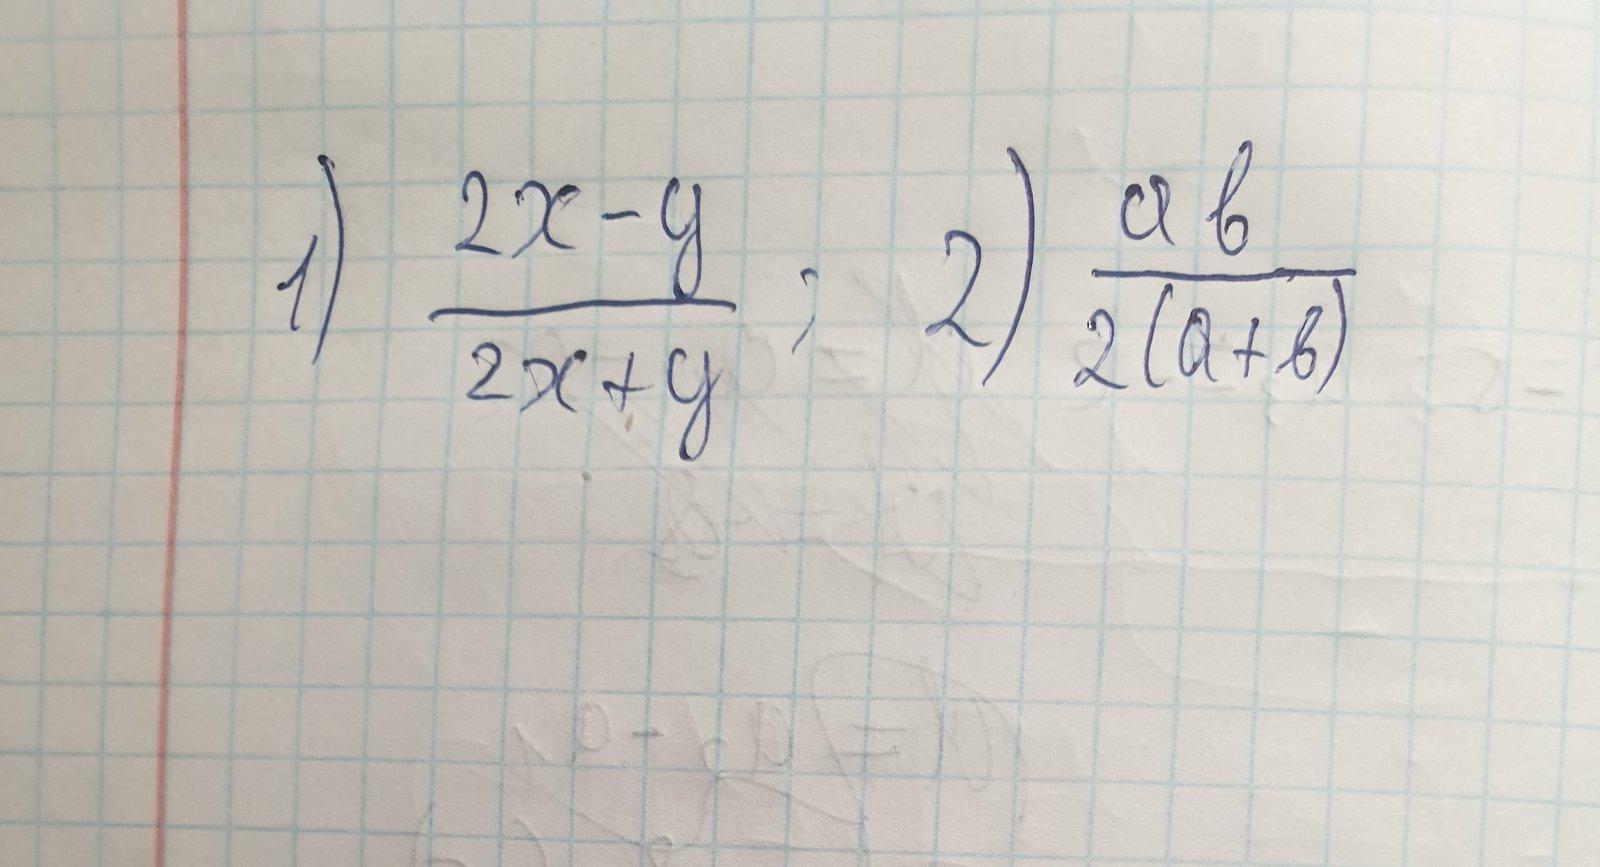 1) (2x-y)/(2x+y) ; 2) (ab)/(2(a+b))